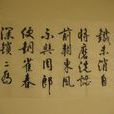 鐵未消自
將磨洗認
前朝東風
不與周郎
便銅雀春
深鎖二喬